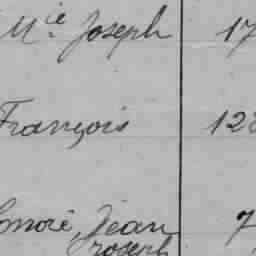 Mie Joseph 17
François 128
Honoré, Jean 7
Joseph